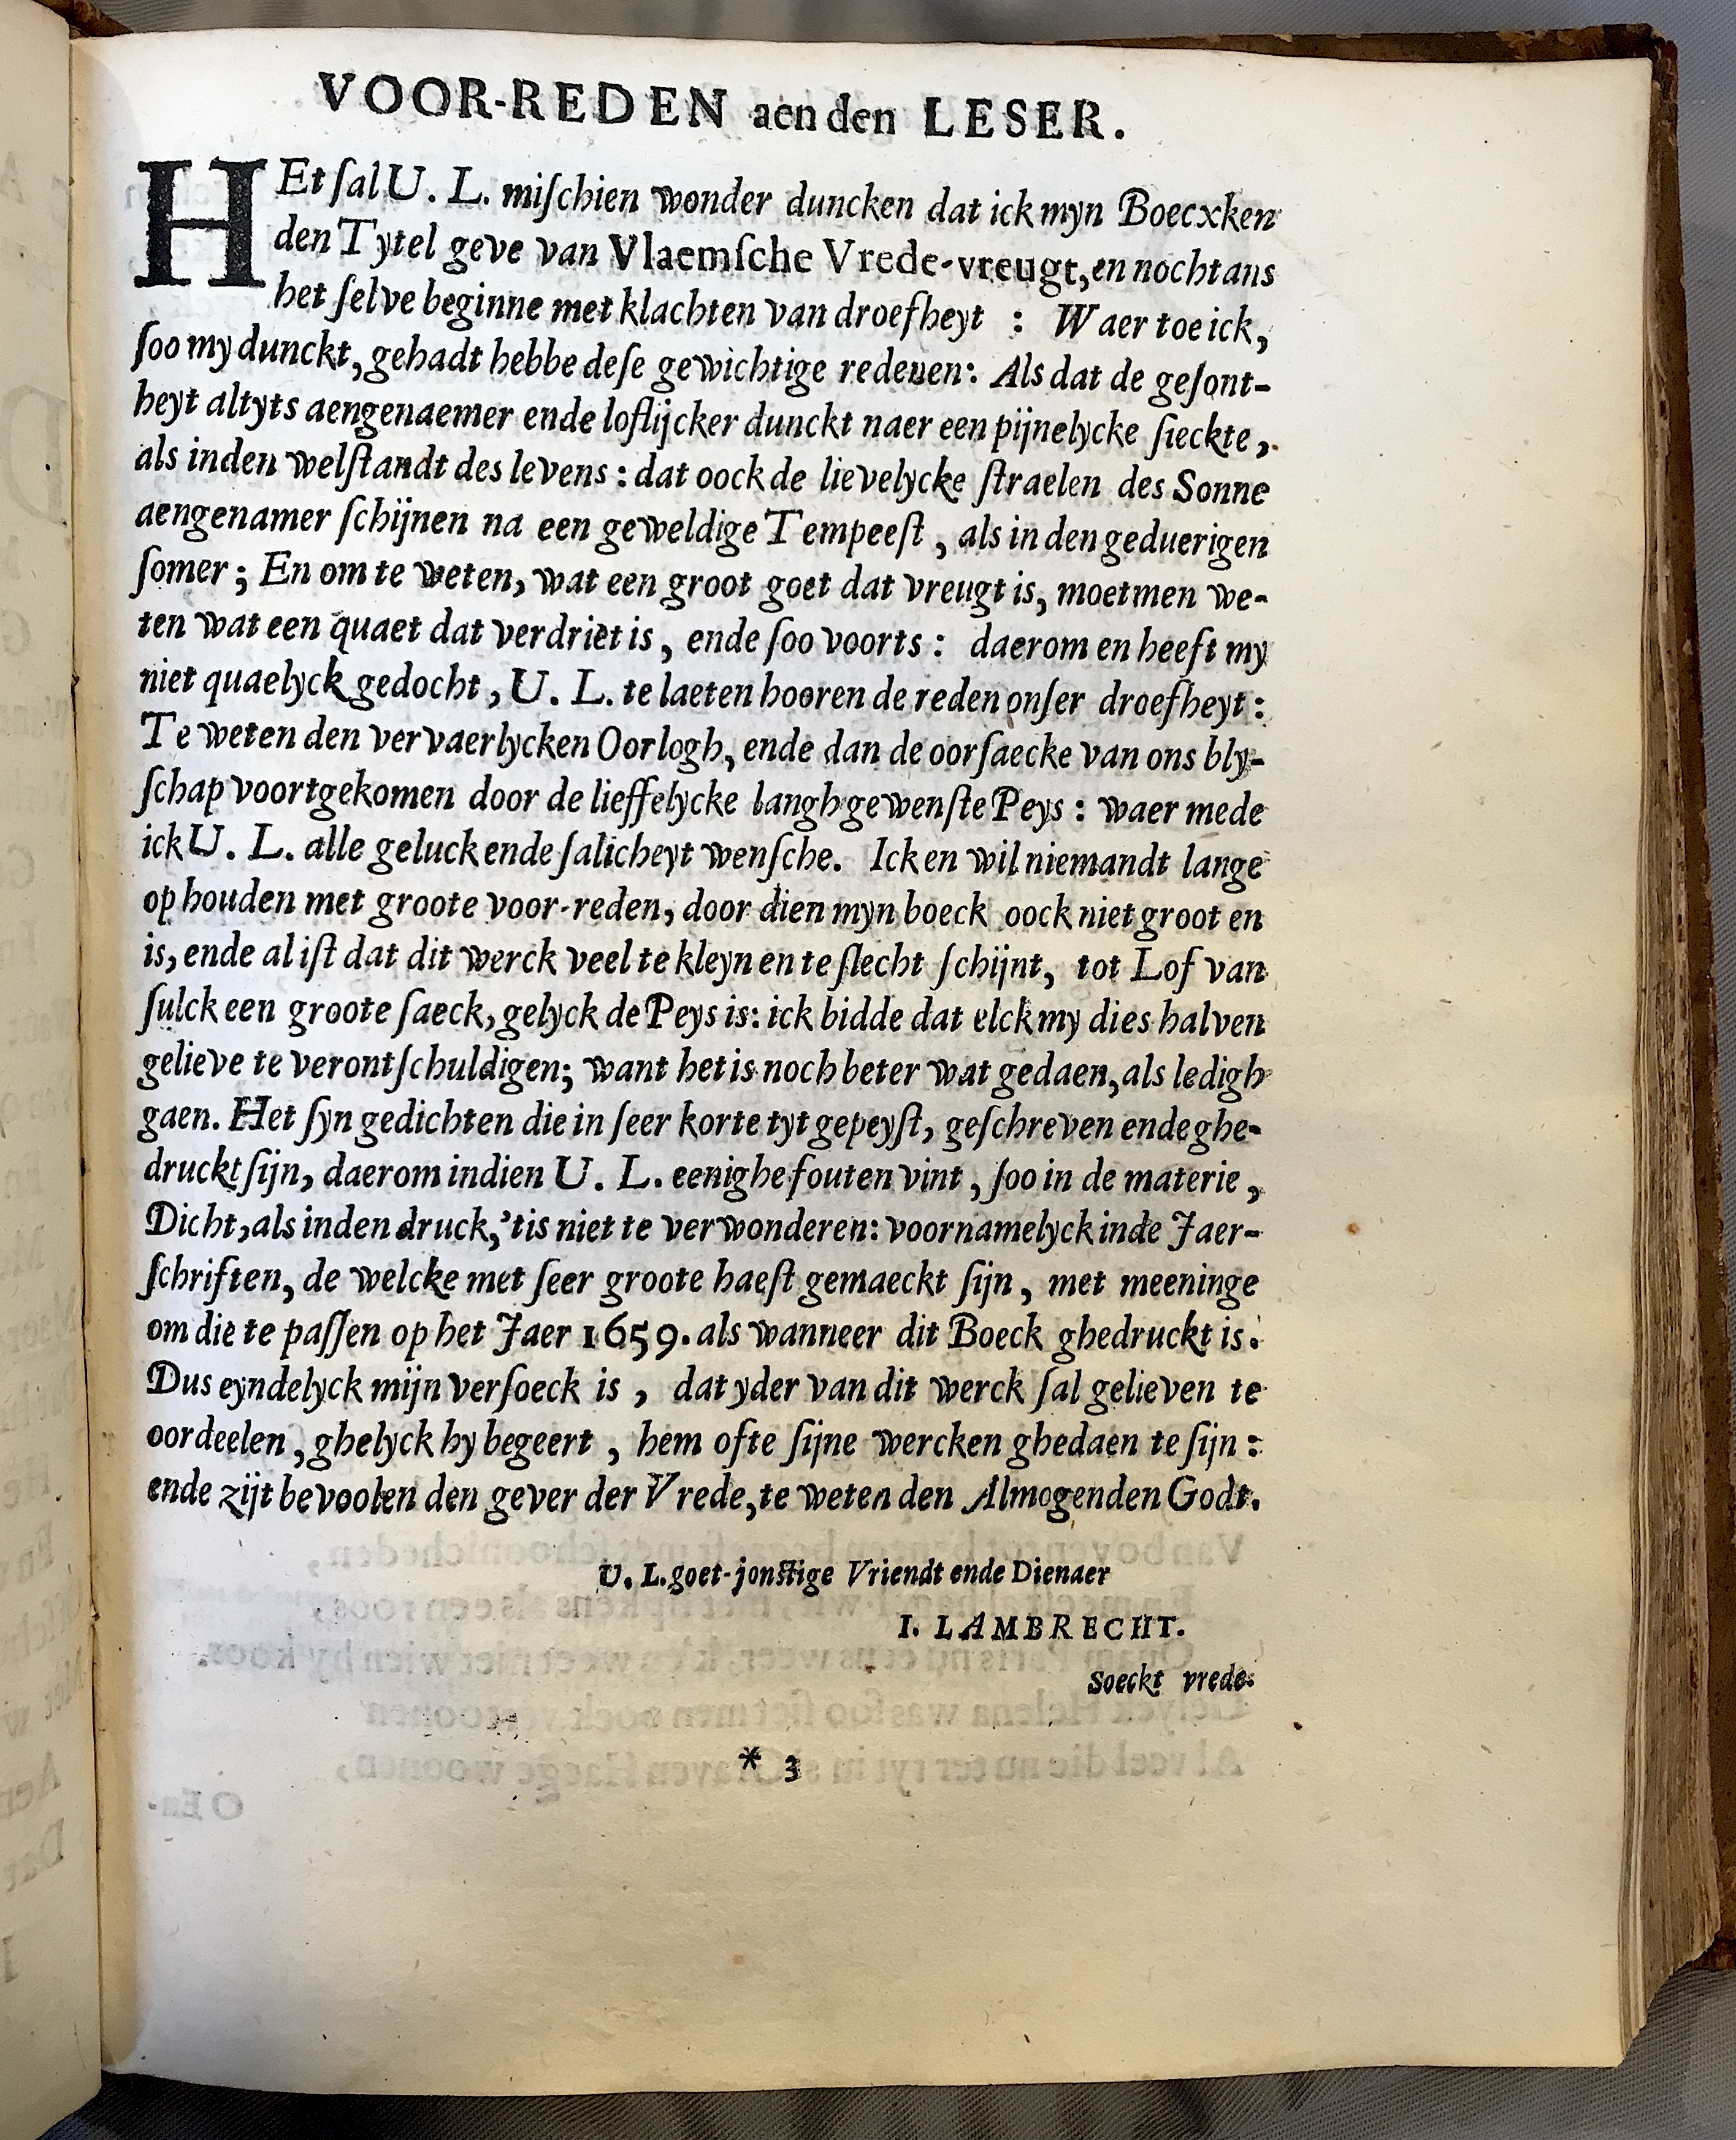 VOOR-REDEN aen den LESER.
HEt ſal U. L. miſchien wonder duncken dat ick myn Boecxken
den Tytel geve van Vlaemſche Vrede-vreugt, en nochtans
het ſelve beginne met klachten van droefheyt : Waer toe ick,
ſoo my dunckt, gehadt hebbe deſe gewichtige redenen: Als dat de geſont-
heyt altyts aengenaemer ende loflijcker dunckt naer een pijnelycke ſieckte,
als inden welſtandt des levens : dat oock de lievelycke ſtraelen des Sonne
aengenamer ſchijnen na een geweldige Tempeeſt, als in den geduerigen
ſomer; En om te weten, wat een groot goet dat vreugt is, moet men we-
ten wat een quaet dat verdriet is, ende ſoo voorts : daerom en heeft my
niet quaelyck gedocht, U. L. te laeten hooren de reden onſer droefheyt :
Te weten den vervaerlycken Oorlogh, ende dan de oorſaecke van ons bly-
ſchap voortgekomen door de lieffelycke langhgewenſte Peys : waer mede
ick U. L. alle geluck ende ſalicheyt wenſche. Ick en wil niemandt lange
op houden met groote voor-reden, door dien myn boeck oock niet groot en
is, ende al iſt dat dit werck veel te kleyn en te ſlecht ſchijnt, tot Lof van
ſulck een groote ſaeck, gelyck de Peys is: ick bidde dat elck my dies halven
gelieve te verontſchuldigen; want het is noch beter wat gedaen, als ledigh
gaen. Het ſyn gedichten die in ſeer korte tyt gepeyſt, geſchreven ende ghe-
druckt ſijn, daerom indien U. L. eenighe fouten vint, ſoo in de materie,
Dicht, als inden druck, 'tis niet te verwonderen: voornamelyck inde Jaer-
ſchriften, de welcke met ſeer groote haeſt gemaeckt ſijn, met meeninge
om die te paſſen op het Jaer 1659. als wanneer dit Boeck ghedruckt is.
Dus eyndelyck mijn verſoeck is, dat yder van dit werck ſal gelieven te
oordeelen, ghelyck hy begeert, hem ofte ſijne wercken ghedaen te ſijn :
ende zijt bevoolen den gever der Vrede, te weten den Almogenden Godt.
U. L. goet-jonſtige Vriendt ende Dienaer
I. LAMBRECHT.
Soeckt vrede.
* 3